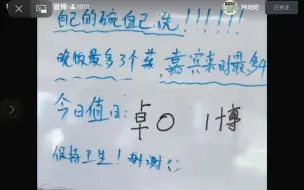 种地吧
已关注
自己的碗自己洗！！！！！！
晚饭最多3个菜，嘉宾来时最多4
今日值日：卓〇 1博
保持卫生！谢谢